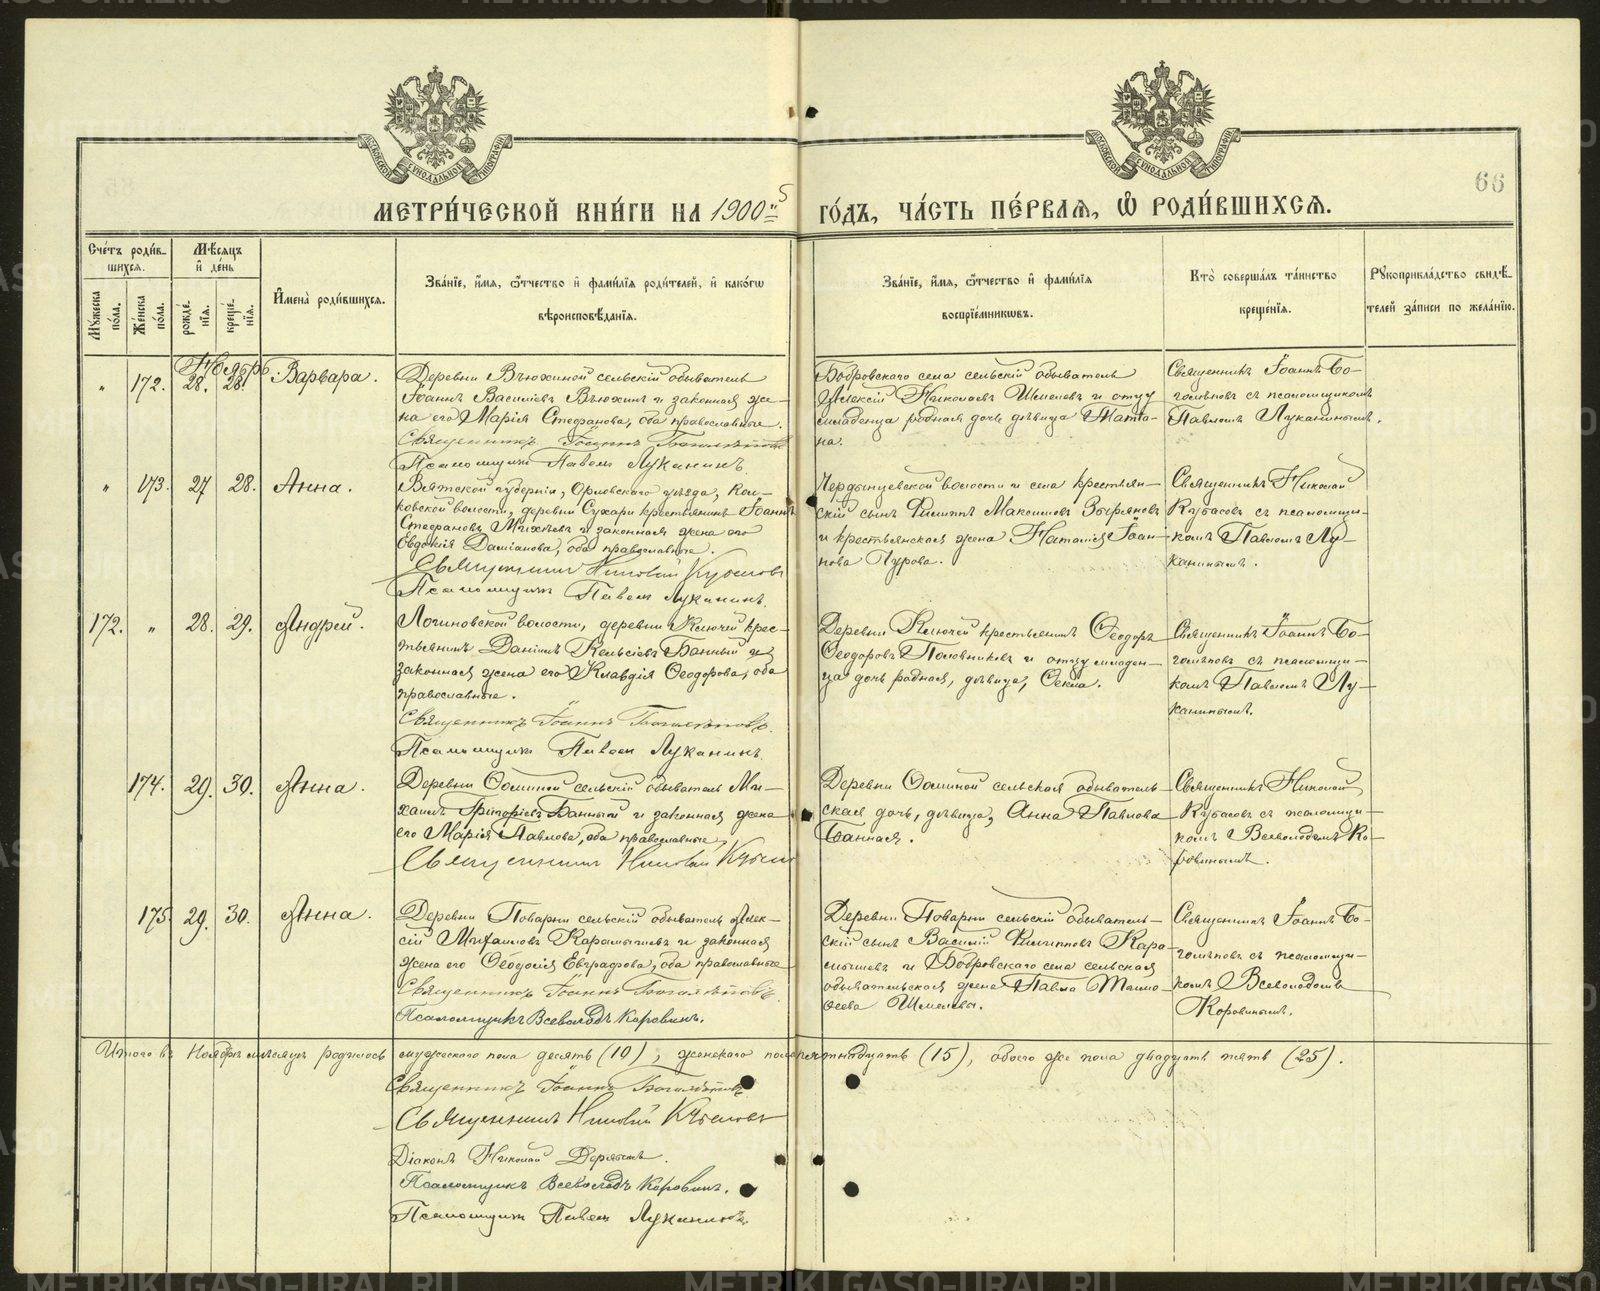 МОСКОВСКОЙ СѴНОДАЛЬНОЙ ТИПОГРАФІИ
МОСКОВСКОЙ СѴНОДАЛЬНОЙ ТИПОГРАФІИ
66
МЕТРИ́ЧЕСКОЙ КНИ́ГИ НА 1900 5
ГО́ДЪ, ЧА́СТЬ ПЕ́РВАЯ, Ѡ РОДИ́ВШИХСЯ.
Сче́тъ роди́в-
шихся.
Мѣсяцъ
и де́нь
Мꙋжеска по́ла.
Же́нска по́ла.
рожде́нія.
креще́нія.
И҆мена̀ роди́вшихся.
Зва́нїе, и҆́мя, ѻ҆́тчество и҆ фами́лїя роди́телей, и҆ како́гѡ
вѣроисповѣ́данїя.
Зва́нїе, и҆́мя, ѻ҆́тчество и҆ фами́лїя
воспрїе́мникѡвъ.
Кто̀ соверша́лъ та́инство
креще́нїя.
Рꙋкоприкла́дство свидѣ́-
телей за́писи по жела́нїю.
Ноябрь
„ 172. 28. 28. Варвара.
Деревни Вьюхиной сельскій обыватель
Іоаннъ Василіевъ Вьюхинъ и законная же-
на его Марія Стефанова, оба православные.
Священникъ Іоаннъ Боголѣповъ
Псаломщикъ Павелъ Луканинъ.
Бобровскаго села сельскій обыватель
Алексій Николаевъ Шмелевъ и отцу
младенца родная дочь дѣвица Татіа-
на.
Священникъ Іоаннъ Бо-
голѣповъ съ псаломщикомъ
Павломъ Луканинымъ.
„ 173. 27 28. Анна.
Вятской губерніи, Орловскаго уѣзда,
волости, деревни Сухари крестьянинъ Іоаннъ
Стефановъ Михѣевъ и законная жена его
Евдокія Даміанова, оба православные.
Священникъ Николай Кубасовъ
Псаломщикъ Павелъ Луканинъ.
Чердынцевской волости и села крестьян-
скій сынъ Филиппъ Максимовъ Зыряновъ
и крестьянская жена Наталія Іоан-
нова Пурова.
Священникъ Николай
Кубасовъ съ псаломщи-
комъ Павломъ Лу-
канинымъ.
172. „ 28. 29. Андрей.
Логиновской волости, деревни Ключей крес-
тьянинъ Даніилъ Кельсіевъ Банный и
законная жена его Клавдія Ѳеодорова, оба
православные.
Священникъ Іоаннъ Боголѣповъ.
Псаломщикъ Павелъ Луканинъ.
Деревни Ключей крестьянинъ Ѳеодоръ
Ѳеодоровъ Половниковъ и отцу младен-
ца дочь родная, дѣвица, Ѳекла.
Священникъ Іоаннъ Бо-
голѣповъ съ псаломщи-
комъ Павломъ Лу-
канинымъ.
174. 29. 30. Анна.
Деревни Ѳоминой сельскій обыватель Ми-
хаилъ Григоріевъ Банный и законная жена
его Марія Павлова, оба православные,
Священникъ Николай
Деревни Ѳоминой сельская обыватель-
ская дочь, дѣвица, Анна Павлова
Банная.
Священникъ Николай
Кубасовъ съ псаломщи-
комъ Всеволодомъ Ко-
ровинымъ.
175. 29. 30. Анна.
Деревни Поварни сельскій обыватель Алек-
сій Михаиловъ Карамышевъ и законная
жена его Ѳеодосія Евграфова, оба православные
Священникъ Іоаннъ Боголѣповъ.
Псаломщикъ Всеволодъ Коровинъ.
Деревни Поварни сельскій обыватель-
скій сынъ Василій Филипповъ Кара-
мышевъ и Бобровскаго села сельская
обывательская жена Павла Тимо-
ѳеева Шмелева.
Священникъ Іоаннъ Бо-
голѣповъ съ псаломщи-
комъ Всеволодомъ
Коровинымъ.
Итого въ Ноябрѣ мѣсяцѣ родилось мужескаго пола десять (10), женскаго пола пятнадцать (15), обоего же пола двадцать пять (25).
Священникъ Іоаннъ Боголѣповъ
Священникъ Николай Кубасовъ
Діаконъ Николай
Псаломщикъ Всеволодъ Коровинъ.
Псаломщикъ Павелъ Луканинъ.
METRIKI.GASO-URAL.RU